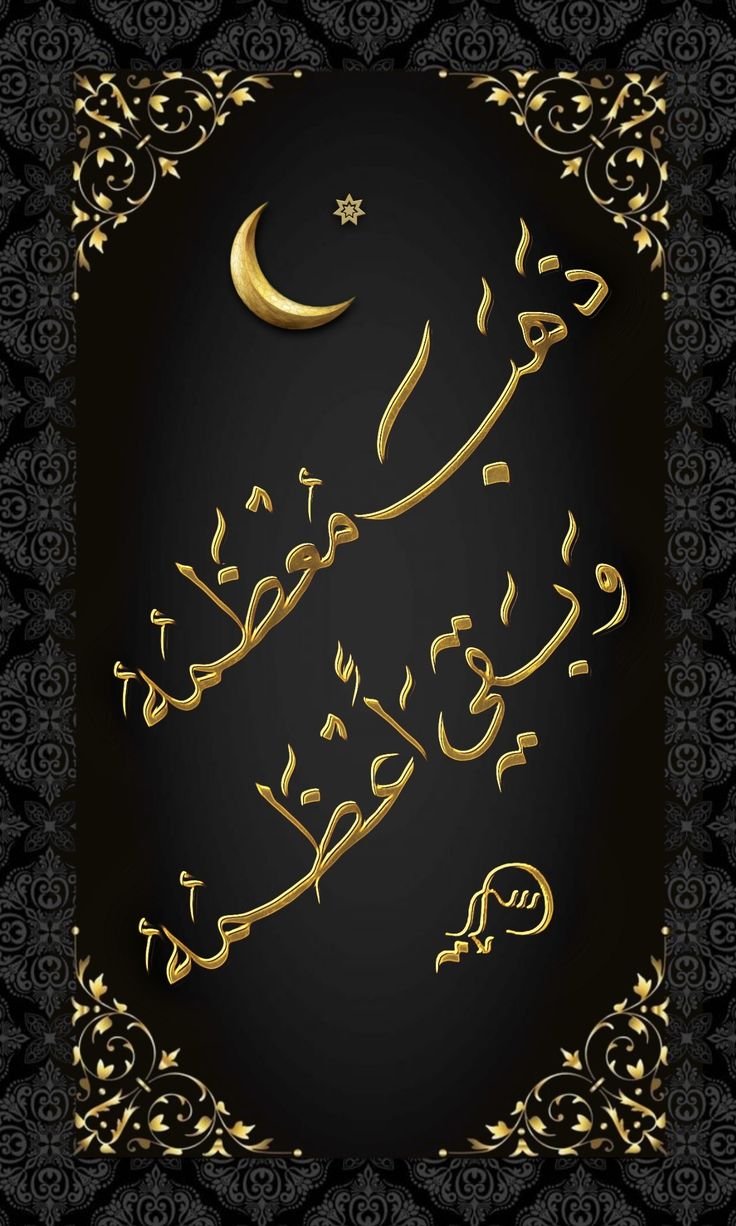 ذَهَبَ مُعْظَمُهُ
وَبَقِيَ أَعْظَمُهُ